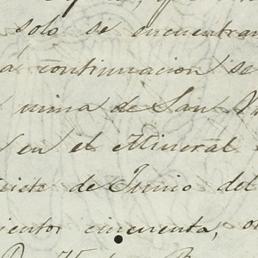 solo se encuentran
a continuacion se
mina de San
en el Mineral
siete de Junio del
cientos cincuenta,